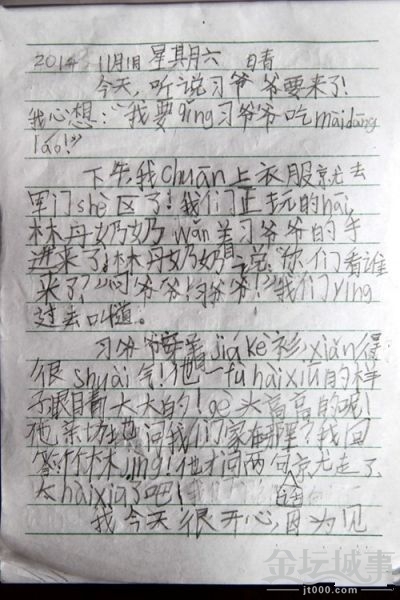 2014. 11月1日 星期六 晴
今天,听说习爷爷要来了!
我心想:“我要qǐng习爷爷吃màidāng
láo!”
下午我chuān上衣服就去
军门shè区了!我们正玩的hāi,
林丹奶奶wǎn着习爷爷的手
进来了!林丹奶奶说:“你们看谁
来了?”“习爷爷!习爷爷!”我们yíng
过去叫道。
习爷爷穿着jiá kè衫,xiǎn得
很shuài气!他一fù hài xiū的样
子眼睛大大的!gè头高高的呢!
他亲切地问我们家在哪里?我回
答:竹林jìng!他才问两句就走了
太hài xiū了吧!
我今天很开心,因为见
金坛城事
jt000.com